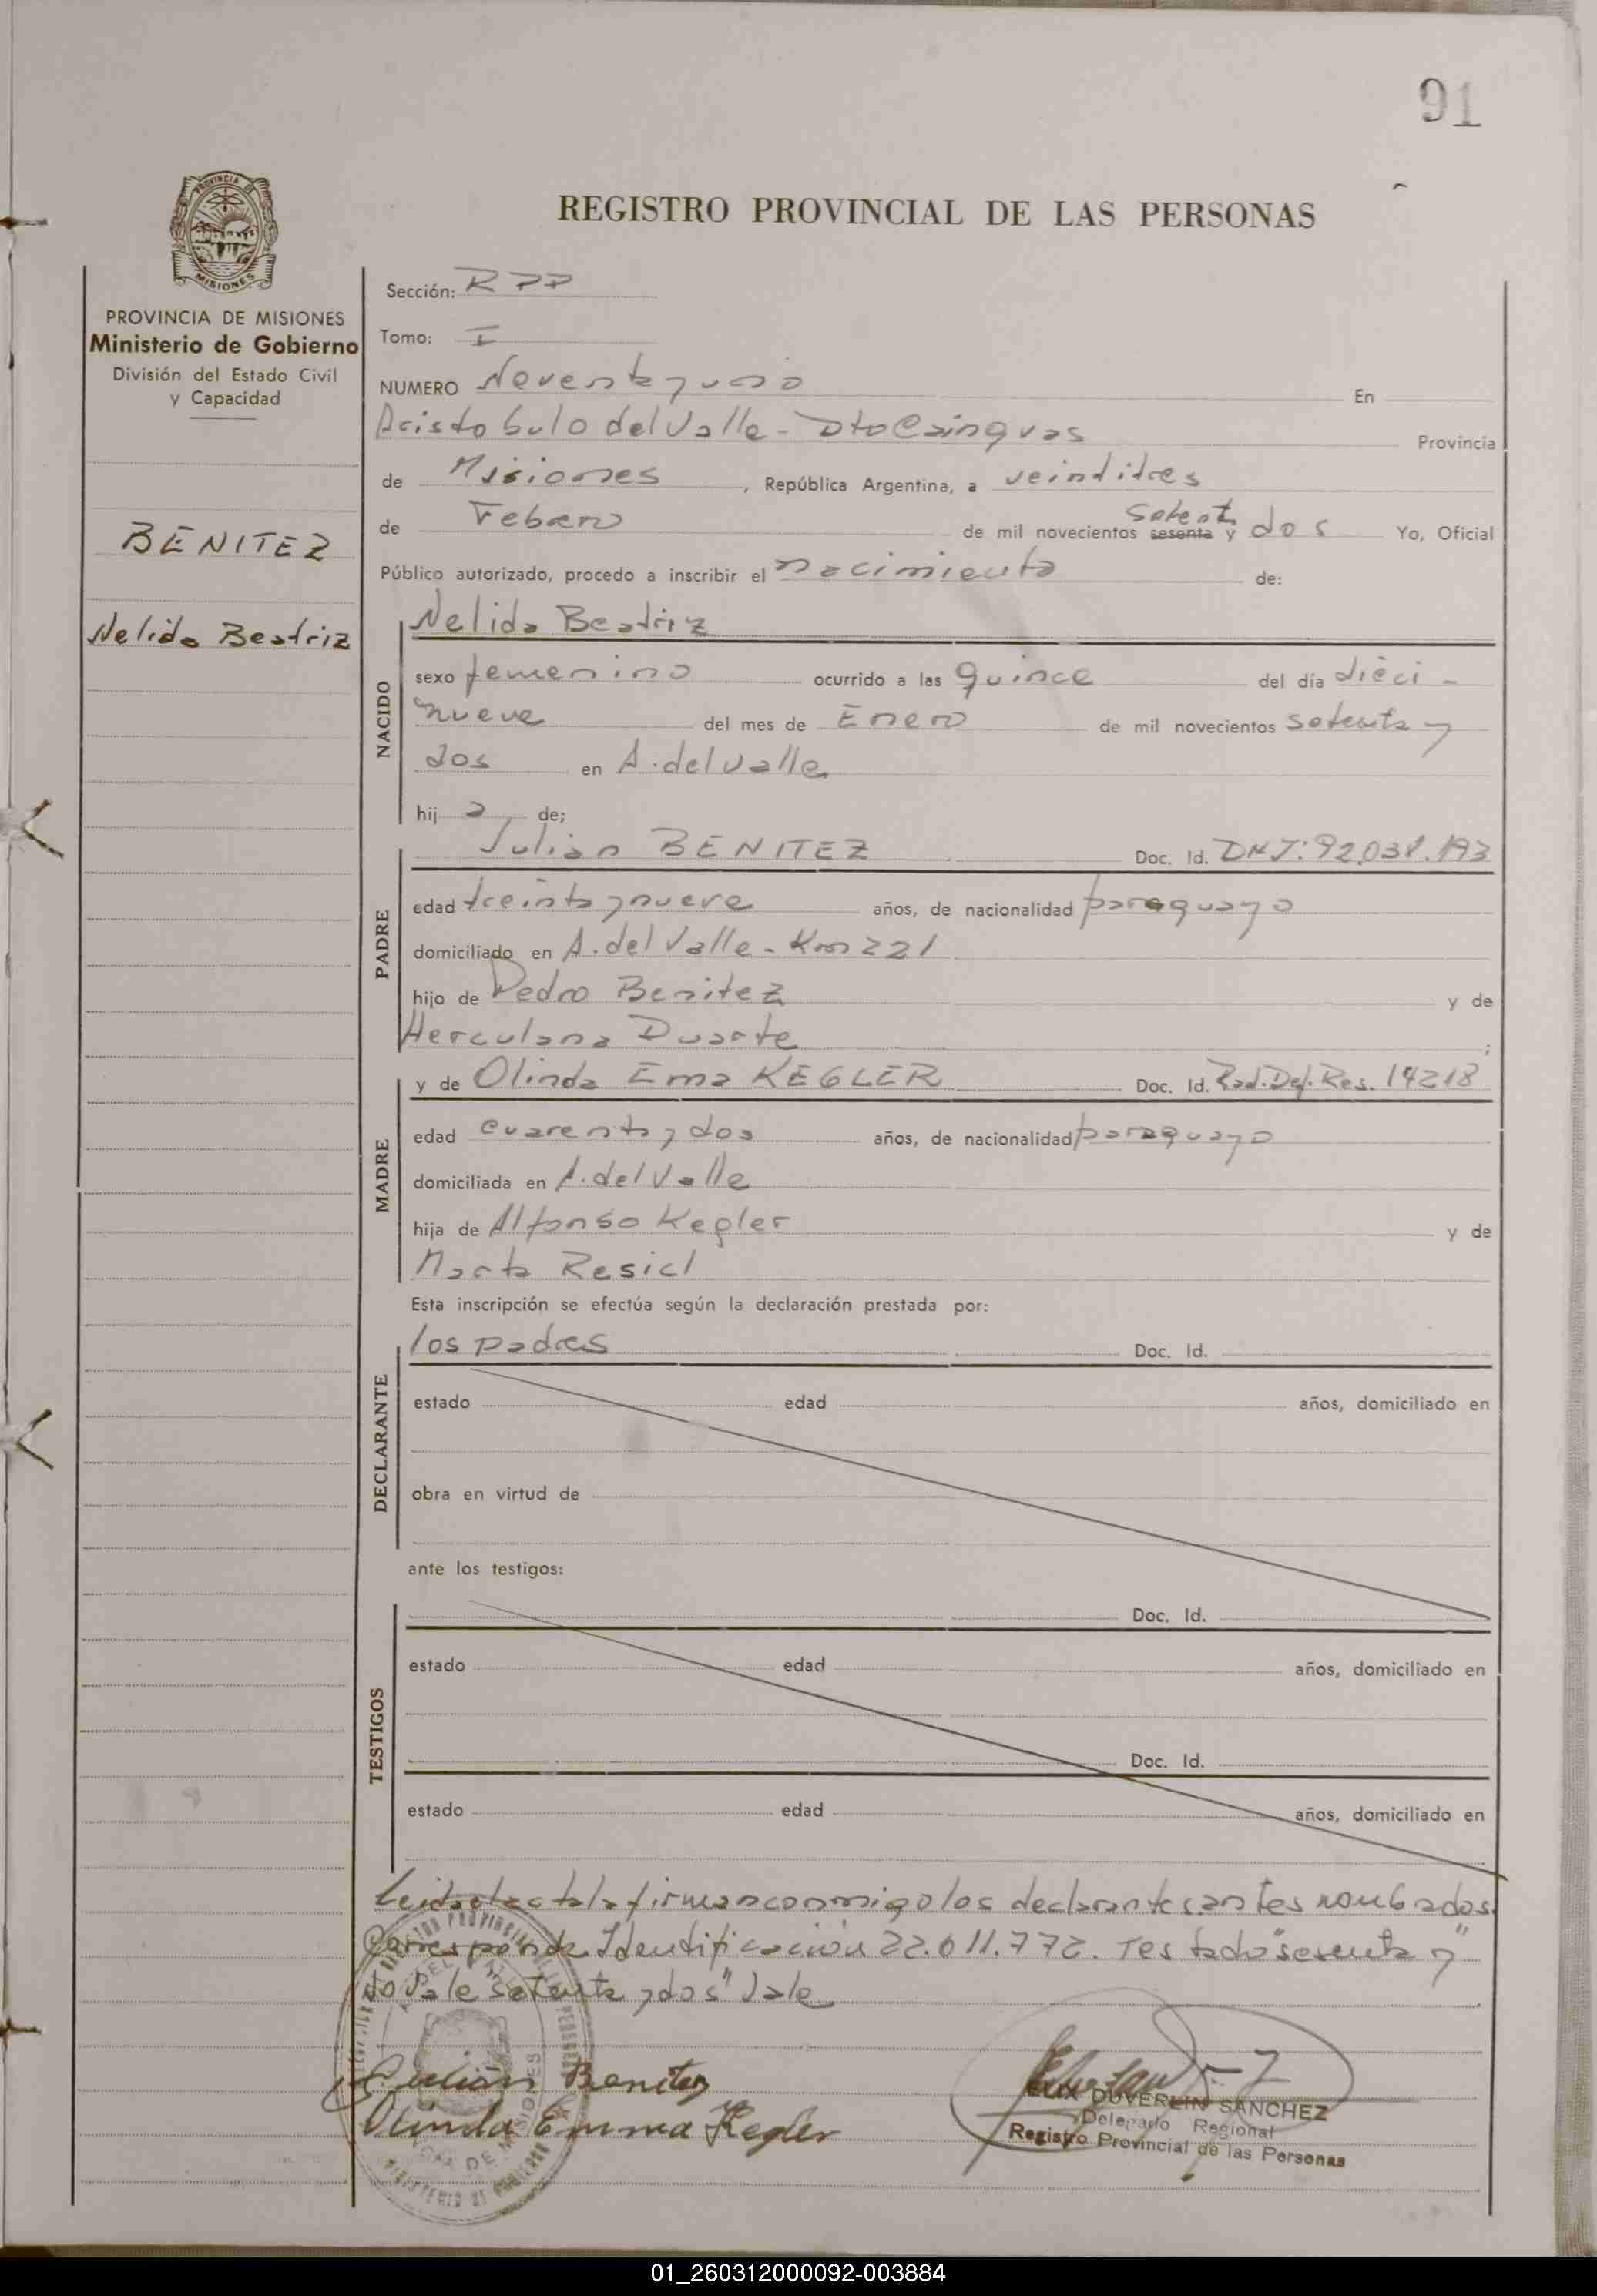 91
PROVINCIA DE
MISIONES
REGISTRO PROVINCIAL DE LAS PERSONAS
PROVINCIA DE MISIONES
Ministerio de Gobierno
División del Estado Civil
y Capacidad
BENITEZ
Nelida Beatriz
Sección: RPP
Tomo: I
NUMERO Noventa y uno En
Aristobulo del Valle - Dto Cainguas Provincia
de Misiones, República Argentina, a veintitres
de Febrero de mil novecientos sesenta setenta y dos Yo, Oficial
Público autorizado, procedo a inscribir el nacimiento de:
NACIDO
Nelida Beatriz
sexo femenino ocurrido a las quince del día dieci-
nueve del mes de Enero de mil novecientos setenta y
dos en A. del Valle
hij a de;
PADRE
Julian BENITEZ Doc. Id. DNI: 92.038.193
edad treinta y nueve años, de nacionalidad paraguayo
domiciliado en A. del Valle - Km 221
hijo de Pedro Benitez y de
Herculana Duarte ;
MADRE
y de Olinda Ema KEGLER Doc. Id. Rad. Def. Res. 14218
edad cuarenta y dos años, de nacionalidad paraguayo
domiciliada en A. del Valle
hija de Alfonso Kegler y de
Marta Resicl
Esta inscripción se efectúa según la declaración prestada por:
DECLARANTE
los padres Doc. Id.
estado edad años, domiciliado en
obra en virtud de
ante los testigos:
TESTIGOS
Doc. Id.
estado edad años, domiciliado en
Doc. Id.
estado edad años, domiciliado en
Leida el acta la firman conmigo los declarantes antes nombados.
Corresponde Identificación 22.611.772. Testado "sesenta y"
No Vale setenta y dos" Vale
Julián Benitez
Olinda Emma Kegler
FELIX DUVERLIN SANCHEZ
Delegado Regional
Registro Provincial de las Personas
01_260312000092-003884